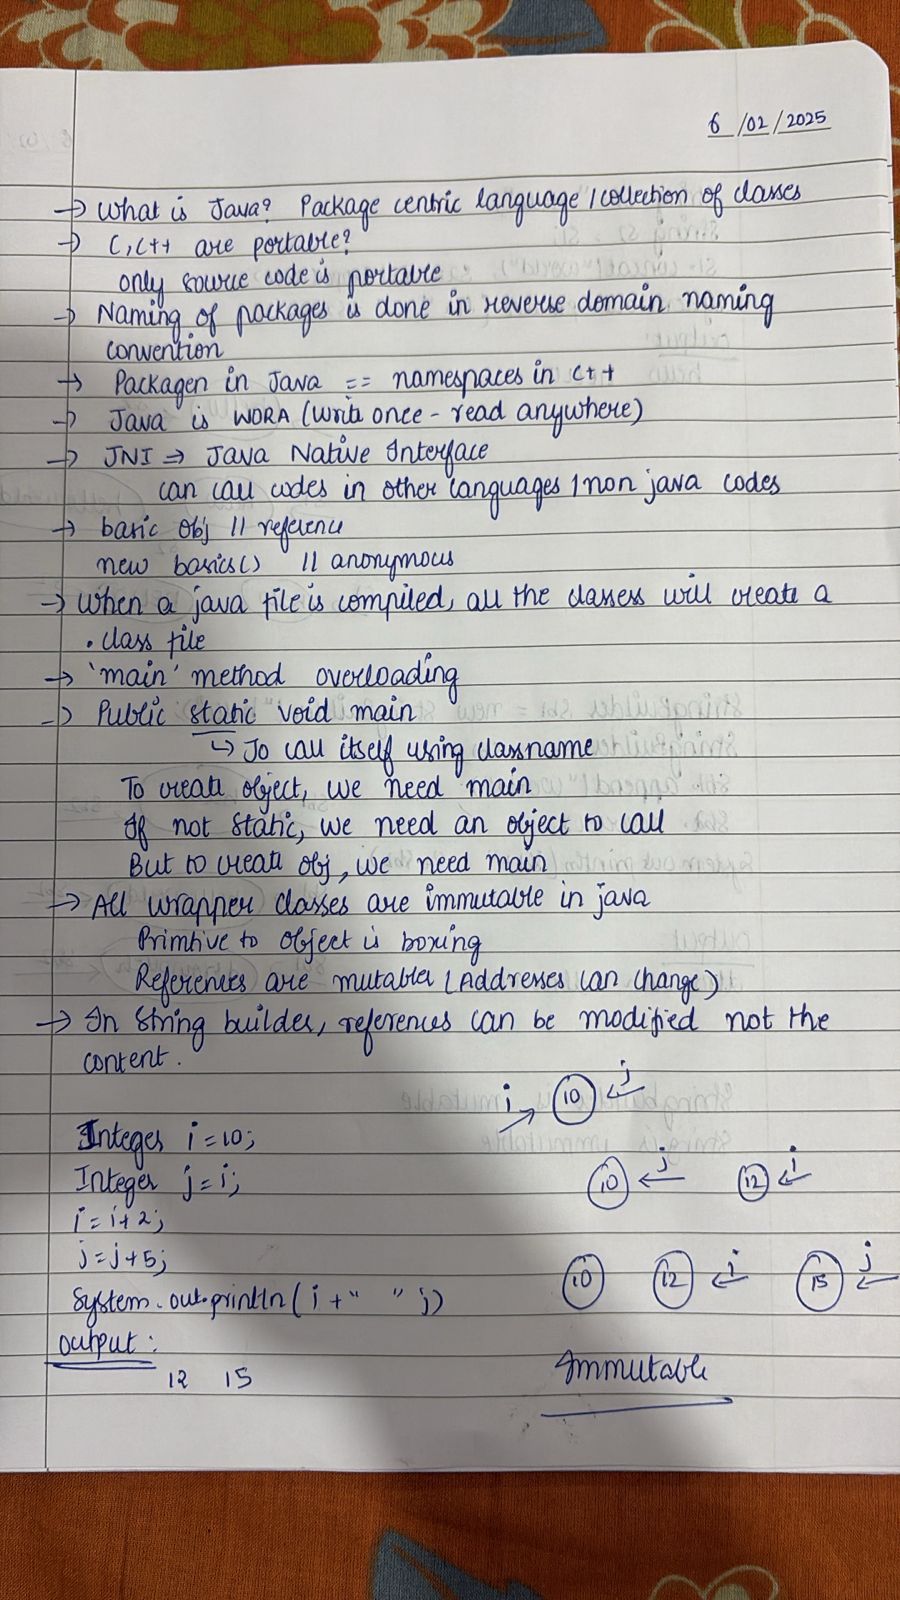 6/02/2025
→ What is Java? Package centric language / collection of classes
→ C, C++ are portable?
only source code is portable
→ Naming of packages is done in reverse domain naming
convention
→ Packagen in Java == namespaces in C++
→ Java is WORA (write once - read anywhere)
→ JNI ⇒ Java Native Interface
can call codes in other languages / non java codes
→ basic obj // reference
new basics() // anonymous
→ When a java file is compiled, all the classess will create a
.class file
→ 'main' method overloading
→ Public static void main
↳ To call itself using classname
To create object, we need main
If not static, we need an object to call
But to create obj, we need main
→ All wrapper classes are immutable in java
Primtive to object is boxing
References are mutables (Addresses can change)
→ In String builder, references can be modified not the
content.
i → 10 ← j
Integer i = 10;
Integer j = i;
10 ← j 12 ← i
i = i + 2;
j = j + 5;
10 12 ← i 15 ← j
System.out.println(i + " " j)
Output:
12 15
Immutable